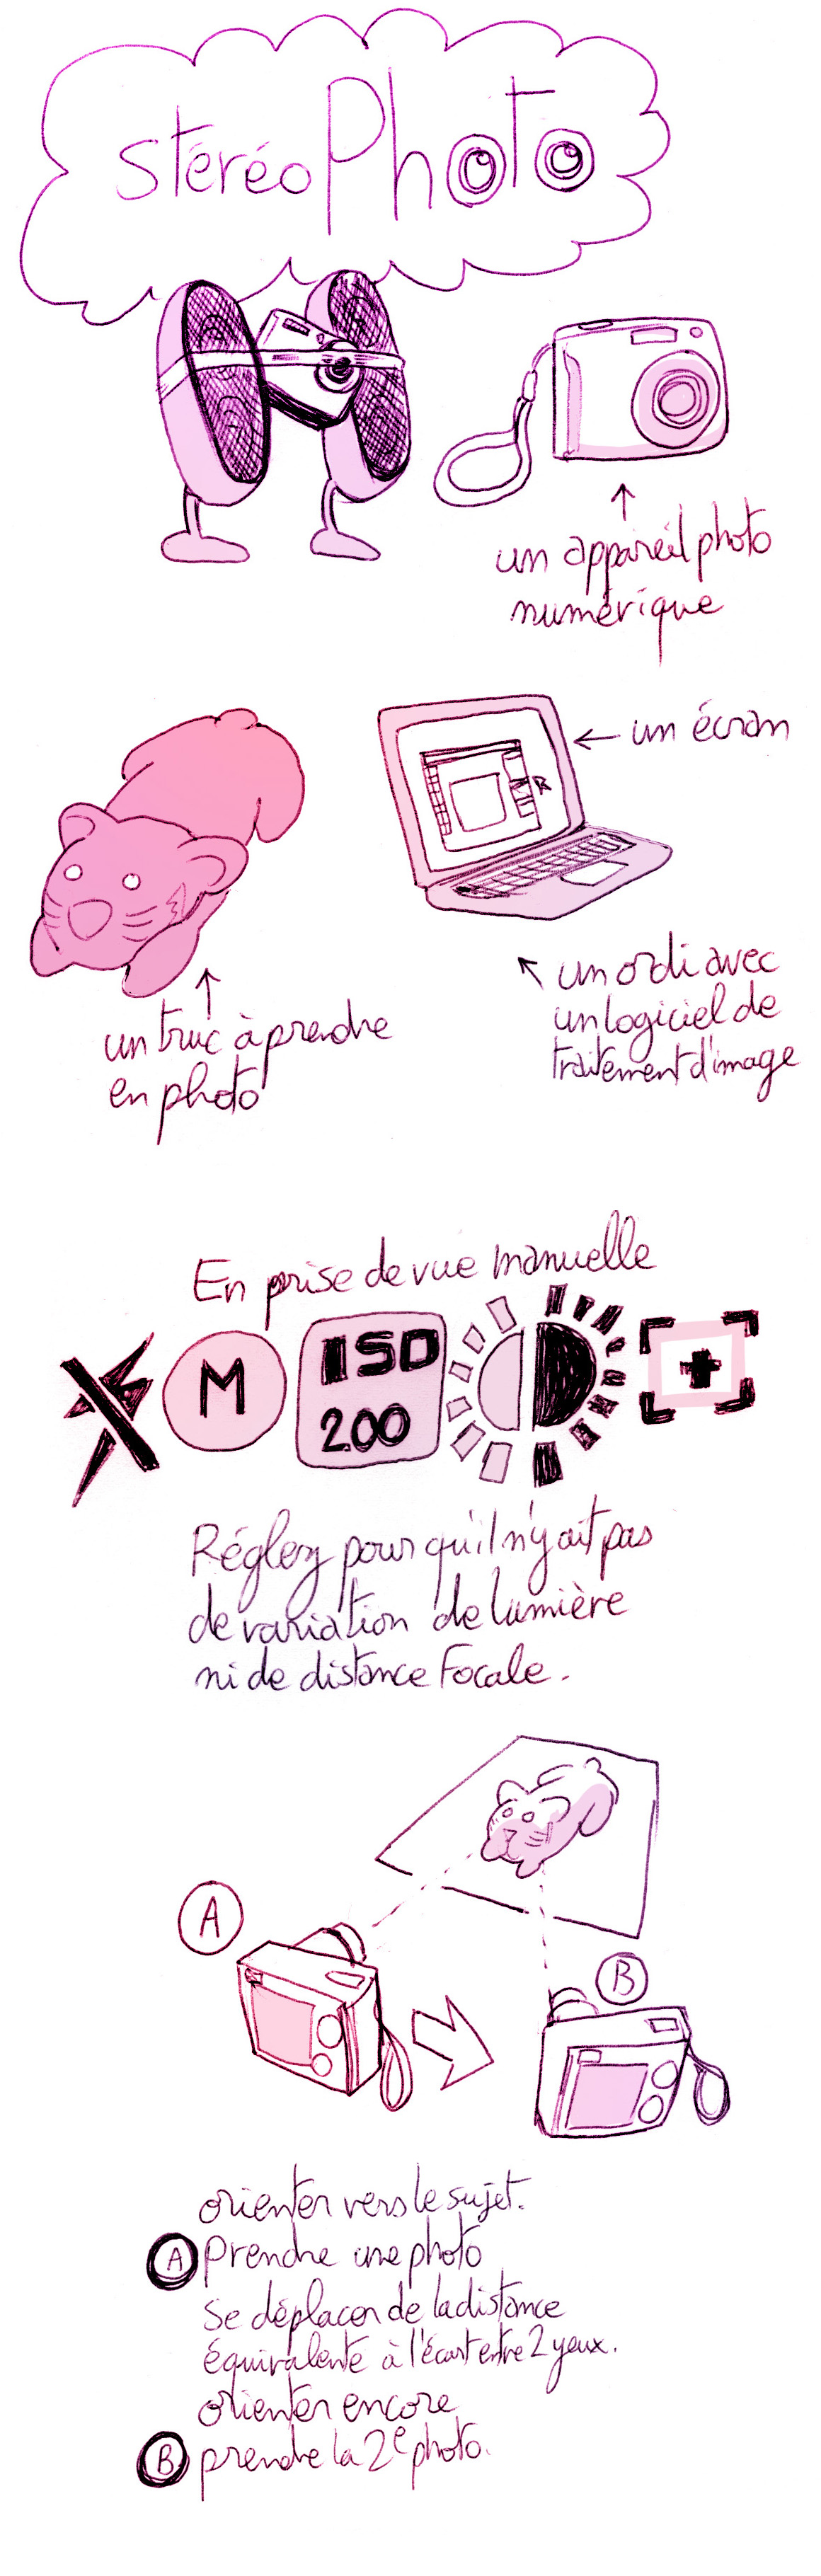 stéréoPhoto
un appareil photo
numérique
un écran
un truc à prendre
en photo
un ordi avec
un logiciel de
traitement d'image
En prise de vue manuelle
M
ISO
200
Régler pour qu'il n'y ait pas
de variation de lumière
ni de distance Focale.
A
B
orienter vers le sujet.
A prendre une photo
se déplacer de la distance
équivalente à l'écart entre 2 yeux.
orienter encore
B prendre la 2e photo.